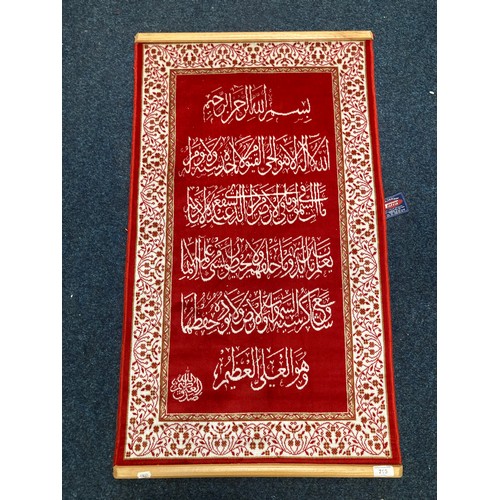 بسم الله الرحمن الرحيم
الله لا إله إلا هو الحي القيوم لا تأخذه سنة ولا نوم له
ما في السموات وما في الأرض من ذا الذي يشفع عنده إلا بإذنه
يعلم ما بين أيديهم وما خلفهم ولا يحيطون بشيء من علمه إلا بما
شاء وسع كرسيه السموات والأرض ولا يؤده حفظهما
وهو العلي العظيم
صدق الله العظيم